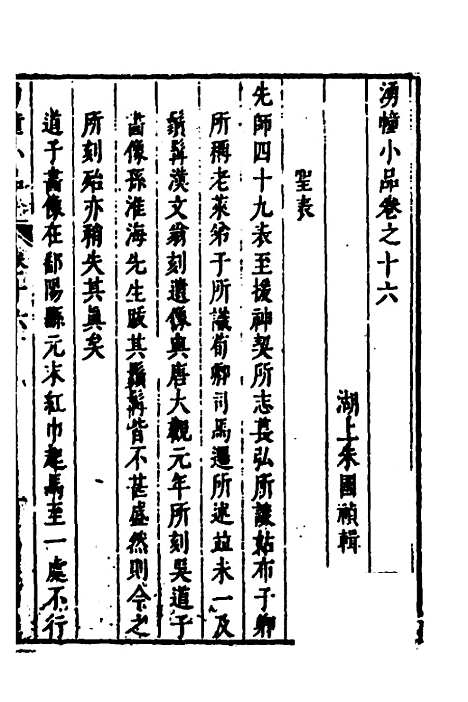 湧幢小品卷之十六
湖上朱國禎輯
聖表
先師四十九表至援神契所志萇弘所談姑布子卿
所稱老萊弟子所議荀卿司馬遷所述並未一及
鬚髯漢文翁刻遺像與唐大觀元年所刻吳道子
畫像孫淮海先生跋其鬚髯皆不甚盛然則今之
所刻殆亦稍失其眞矣
道子畫像在鄱陽縣元末紅巾起馬至一處不行